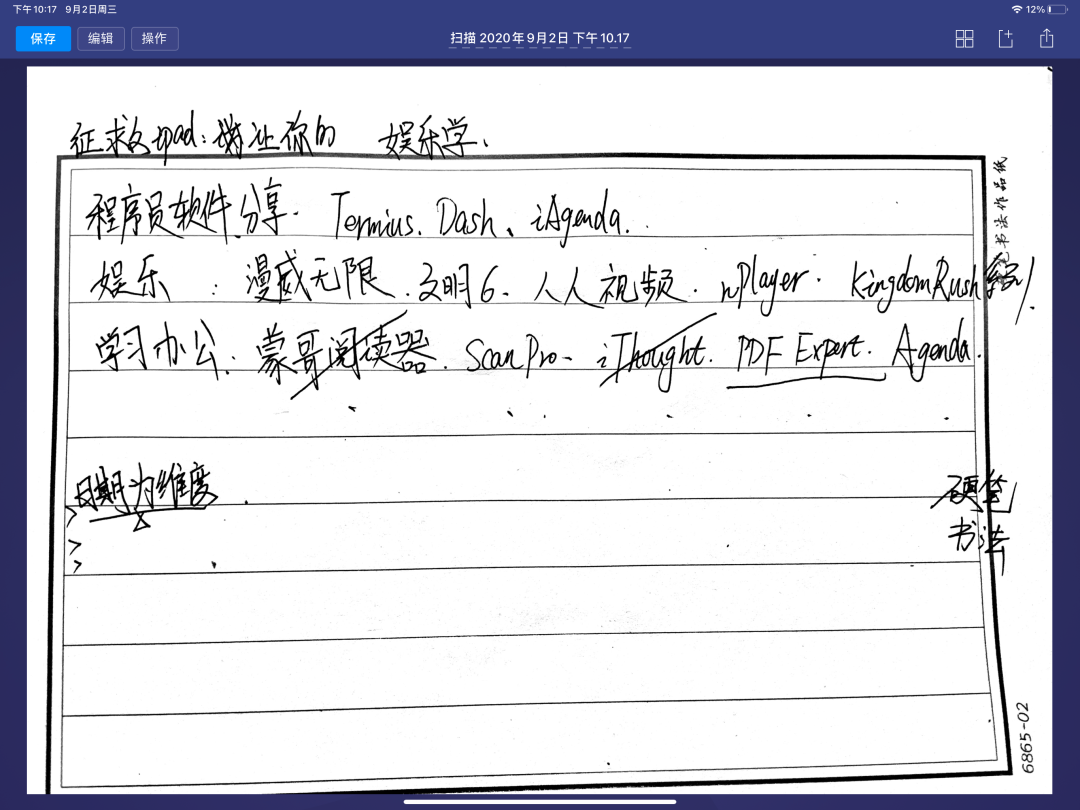 下午10:17 9月2日周三 12%
保存 编辑 操作 扫描 2020年9月2日 下午10.17
征救ipad:让你的 娱乐学、
程序员软件分享. Termius. Dash、iAgenda.
娱乐 : 漫威无限. 文明6. 人人视频. nPlayer. KingdomRush
学习办公: 蒙哥阅读器. ScanPro. iThought. PDF Expert. Agenda.
日期为维度.
硬笔
书法
书法作品纸
6865-02